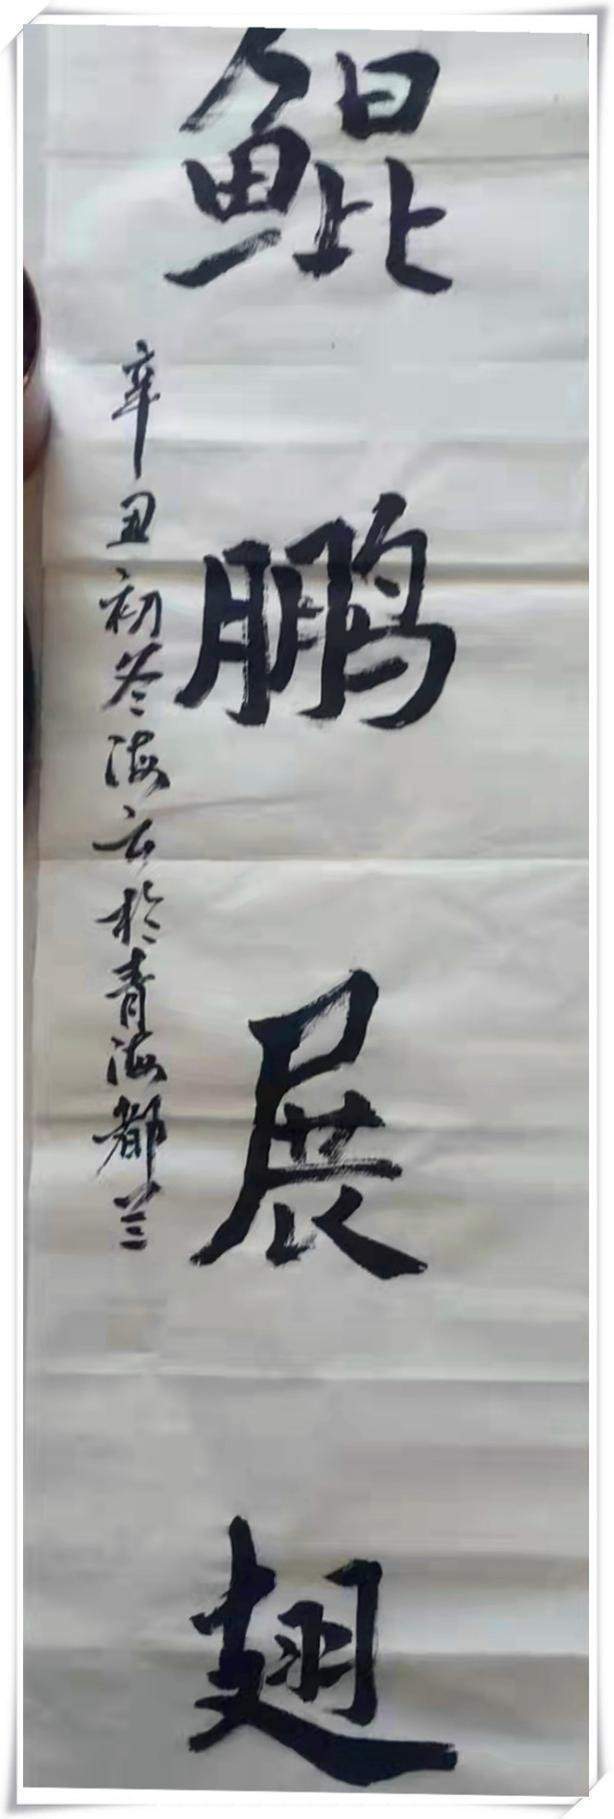 鲲鹏展翅
辛丑初冬海云於青海都兰